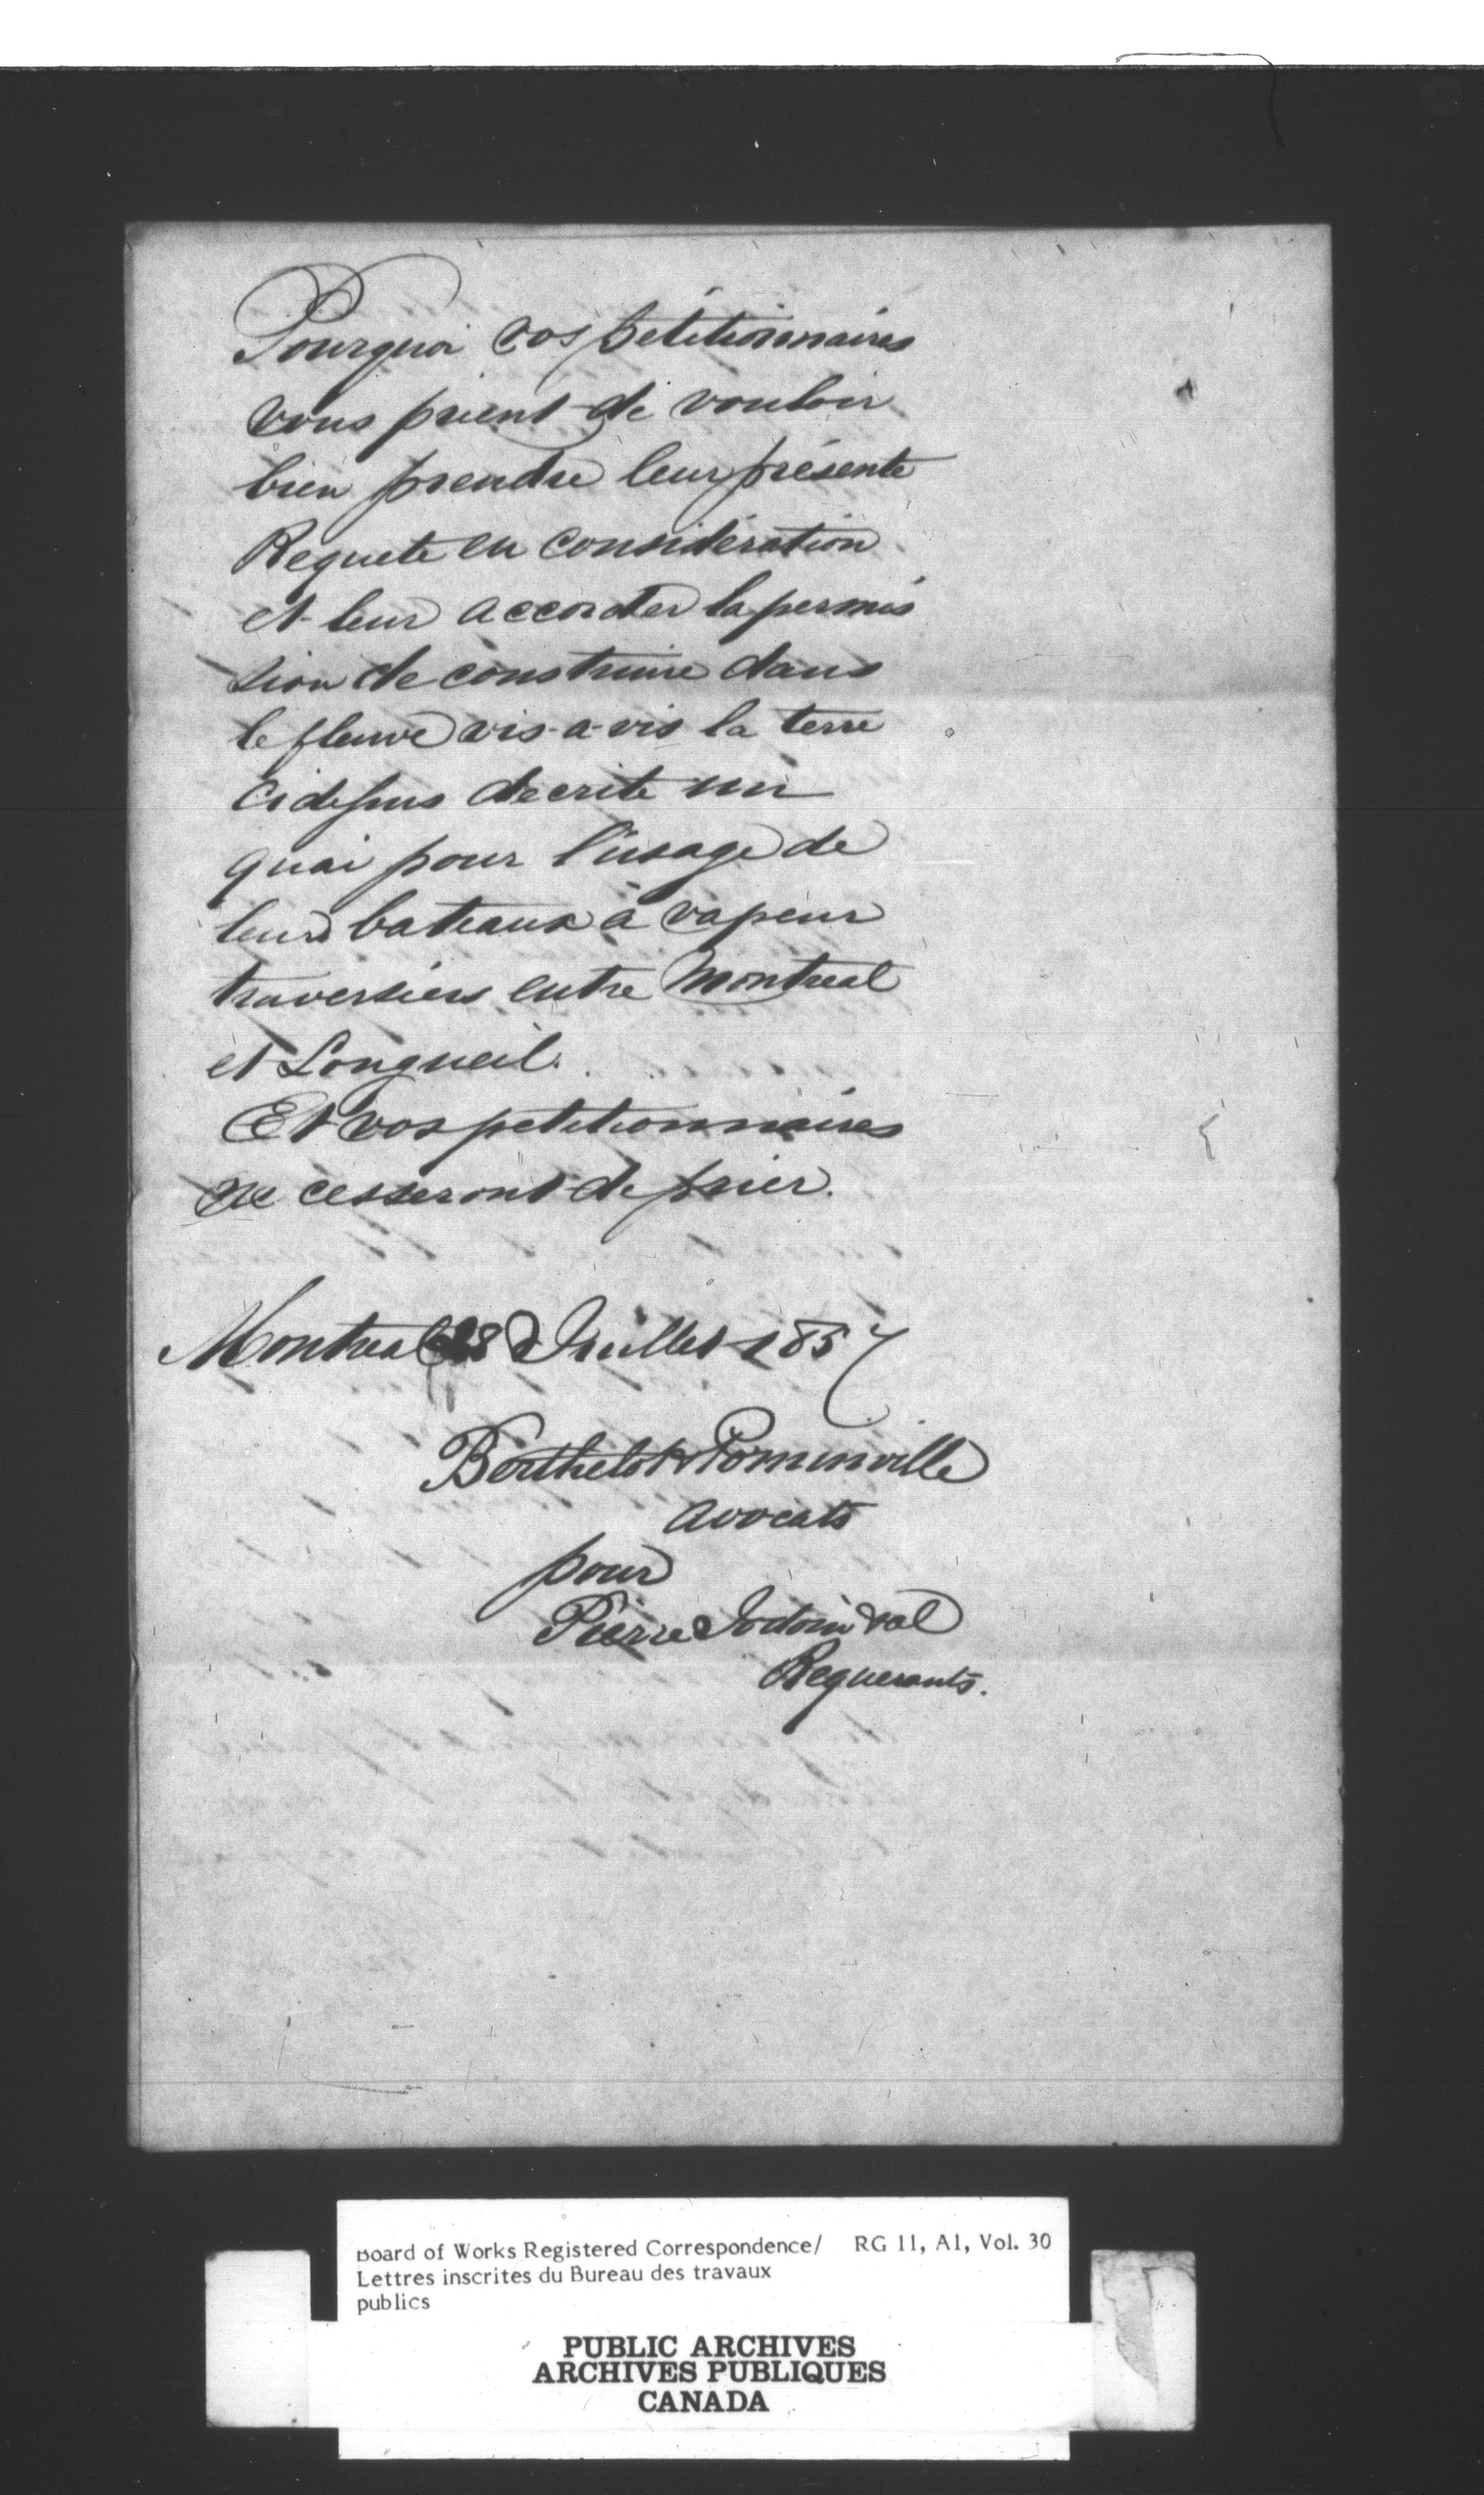 Pourquoi vos petitionnaires
vous prient de vouloir
bien prendre leur présente
Requete en considération
et leur accorder la permis
sion de construire dans
le fleuve vis-a-vis la terre
ci dessus decrite un
quai pour l'usage de
leurs bateaux à vapeur
traversiers entre Montreal
et Longueil.
Et vos petitionnaires
ne cesseront de prier.
Montreal 28 Juillet 1857
Berthelot & Pominville
avocats
pour
Pierre Jodoin & al
Requerants.
Board of Works Registered Correspondence/ RG 11, A1, Vol. 30
Lettres inscrites du Bureau des travaux
publics
PUBLIC ARCHIVES
ARCHIVES PUBLIQUES
CANADA